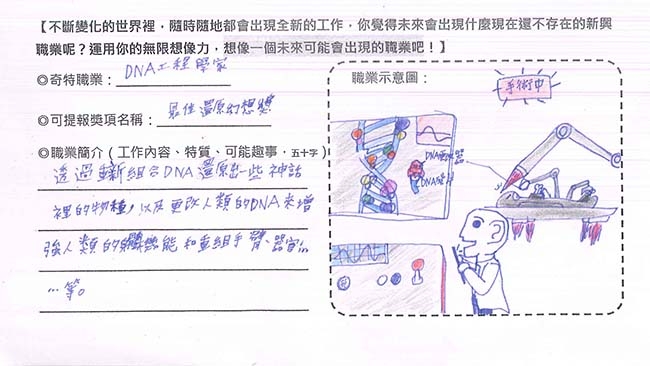 【不斷變化的世界裡，隨時隨地都會出現全新的工作，你覺得未來會出現什麼現在還不存在的新興
職業呢？運用你的無限想像力，想像一個未來可能會出現的職業吧！】
◎奇特職業：DNA工程學家
◎可提報獎項名稱：最佳還原幻想獎
◎職業簡介（工作內容、特質、可能趣事，五十字）
透過重新組合DNA還原出一些神話
裡的物種，以及更改人類的DNA來增
強人類的機能和重組手臂、器官…
…等。
職業示意圖：
手術中